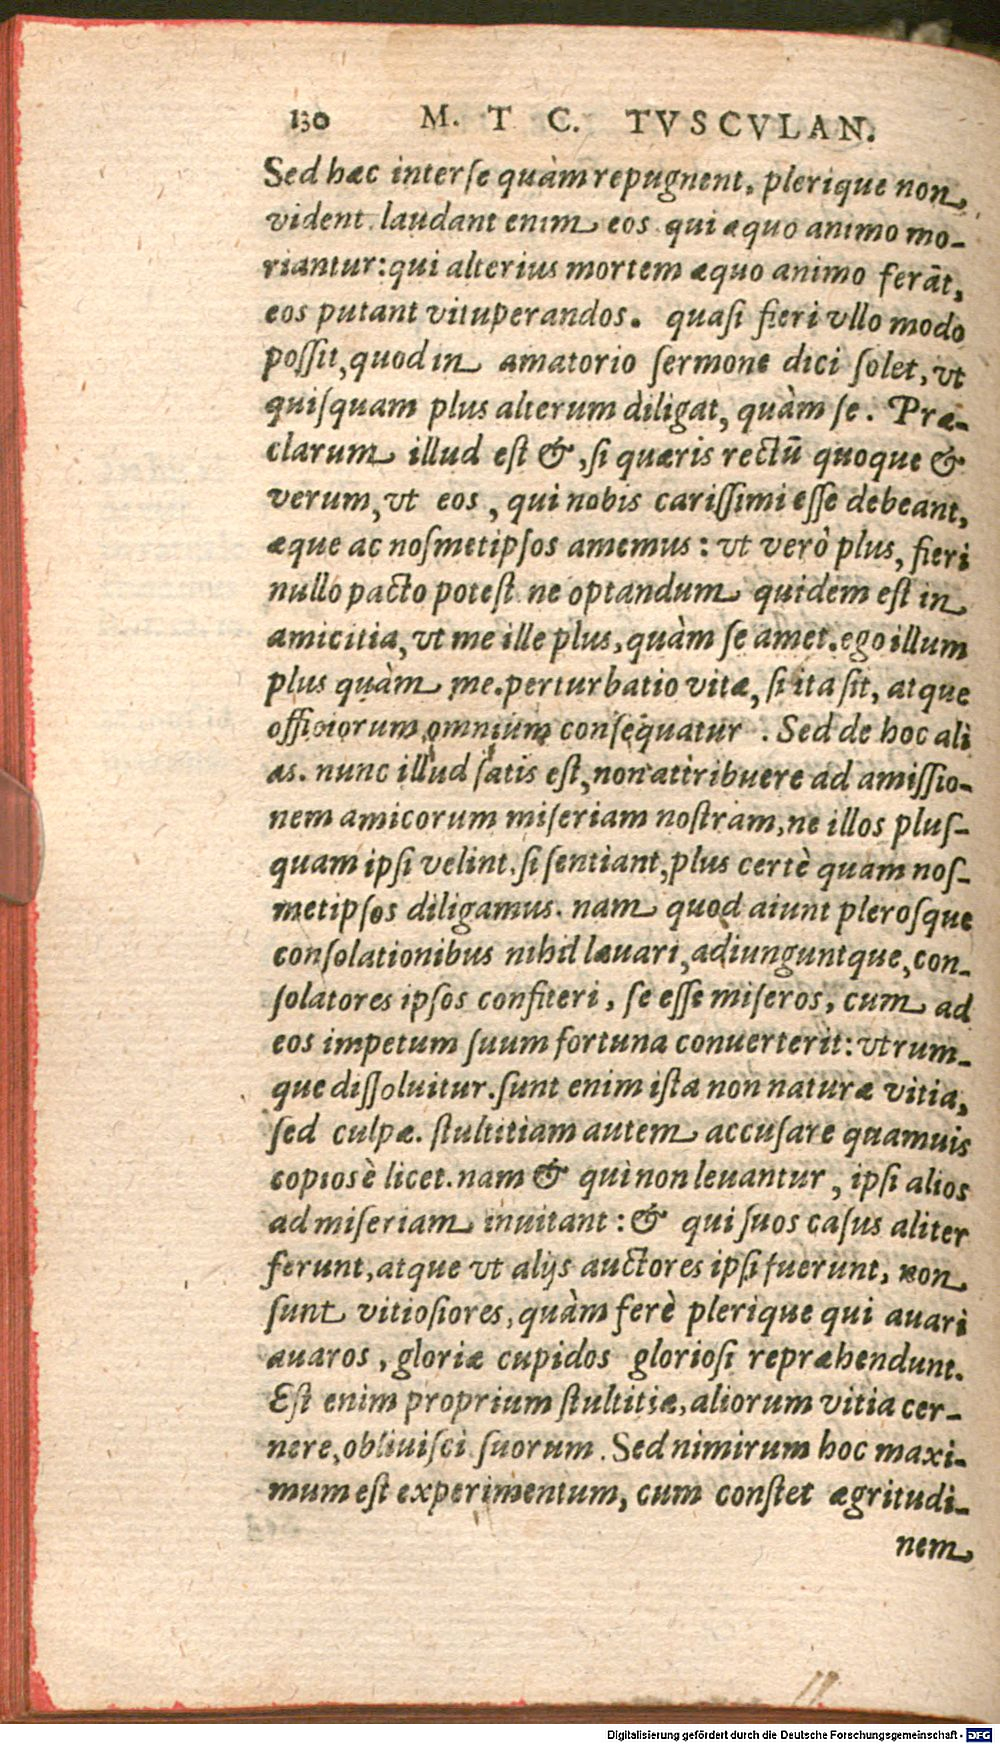 130 M. T C. TVSCVLAN.
Sed hæc inter se quàm repugnent, plerique non
vident. laudant enim eos qui æquo animo mo-
riantur: qui alterius mortem æquo animo ferāt,
eos putant vituperandos. quasi fieri vllo modo
possit, quod in amatorio sermone dici solet, vt
quisquam plus alterum diligat, quàm se. Præ-
clarum illud est &, si quæris rectū quoque &
verum, vt eos, qui nobis carissimi esse debeant,
æque ac nosmetipsos amemus: vt verò plus, fieri
nullo pacto potest. ne optandum quidem est in
amicitia, vt me ille plus, quàm se amet. ego illum
plus quàm me. perturbatio vitæ, si ita sit, atque
officiorum omnium consequatur . Sed de hoc ali
as. nunc illud satis est, non attribuere ad amissio-
nem amicorum miseriam nostram, ne illos plus-
quam ipsi velint. si sentiant, plus certè quam nos-
metipsos diligamus. nam quod aiunt plerosque
consolationibus nihil læuari, adiunguntque, con-
solatores ipsos confiteri, se esse miseros, cum ad
eos impetum suum fortuna conuerterit: vtrum-
que dissoluitur. sunt enim ista non naturæ vitia,
sed culpæ. stultitiam autem accusare quamuis
copiosè licet. nam & qui non leuantur, ipsi alios
ad miseriam inuitant: & qui suos casus aliter
ferunt, atque vt alijs auctores ipsi fuerunt, non
sunt vitiosiores, quàm ferè plerique qui auari
auaros, gloriæ cupidos gloriosi repræhendunt.
Est enim proprium stultitiæ, aliorum vitia cer-
nere, obliuisci suorum. Sed nimirum hoc maxi-
mum est experimentum, cum constet ægritudi-
nem
Digitalisierung gefördert durch die Deutsche Forschungsgemeinschaft - DFG